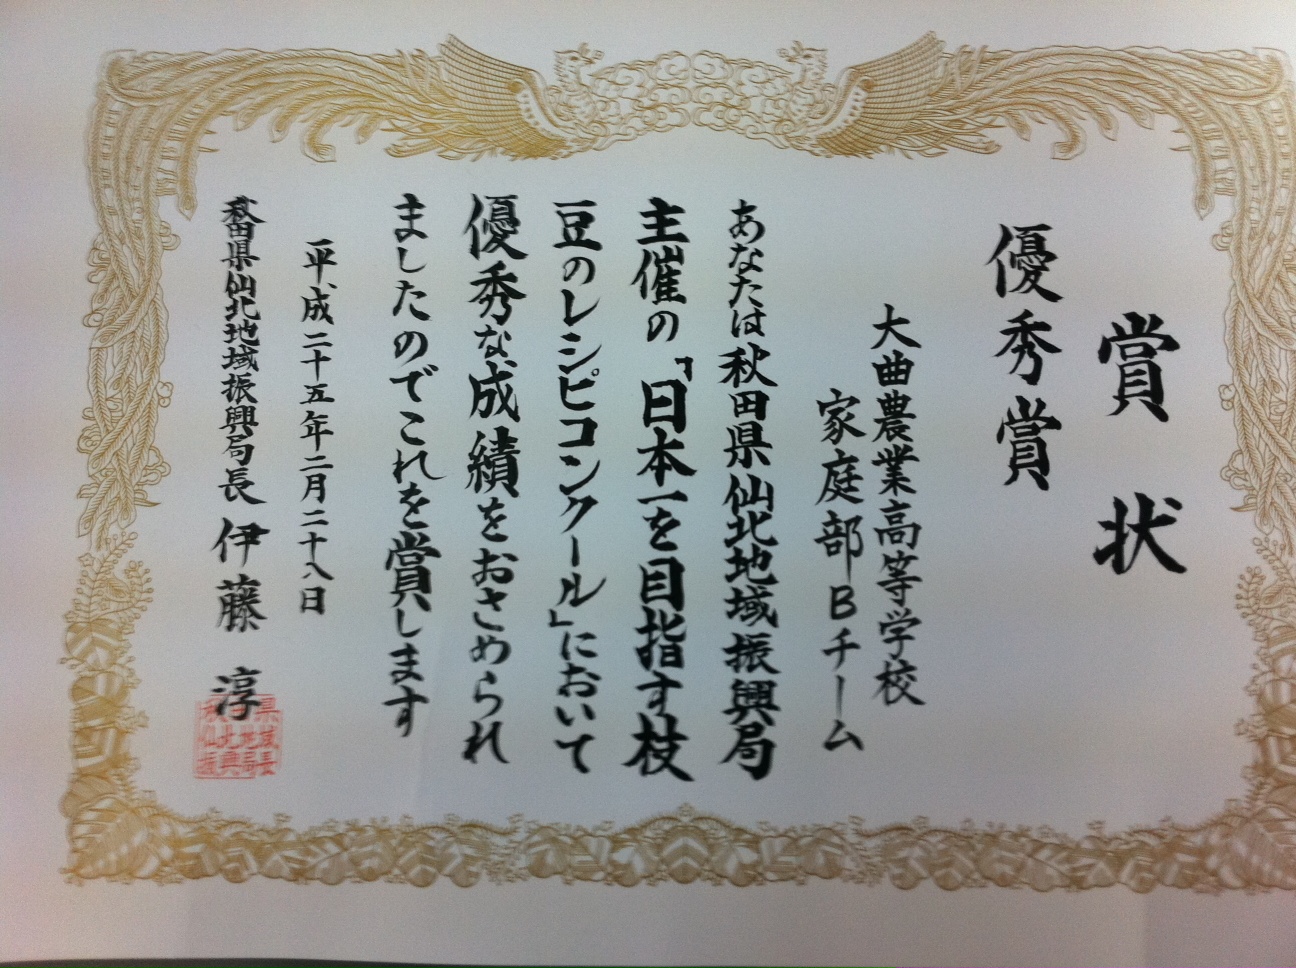 賞状
優秀賞
大曲農業高等学校
家庭部Bチーム
あなたは秋田県仙北地域振興局
主催の「日本一を目指す枝
豆のレシピコンクール」において
優秀な成績をおさめられ
ましたのでこれを賞します
平成二十五年二月二十八日
秋田県仙北地域振興局長 伊藤 淳